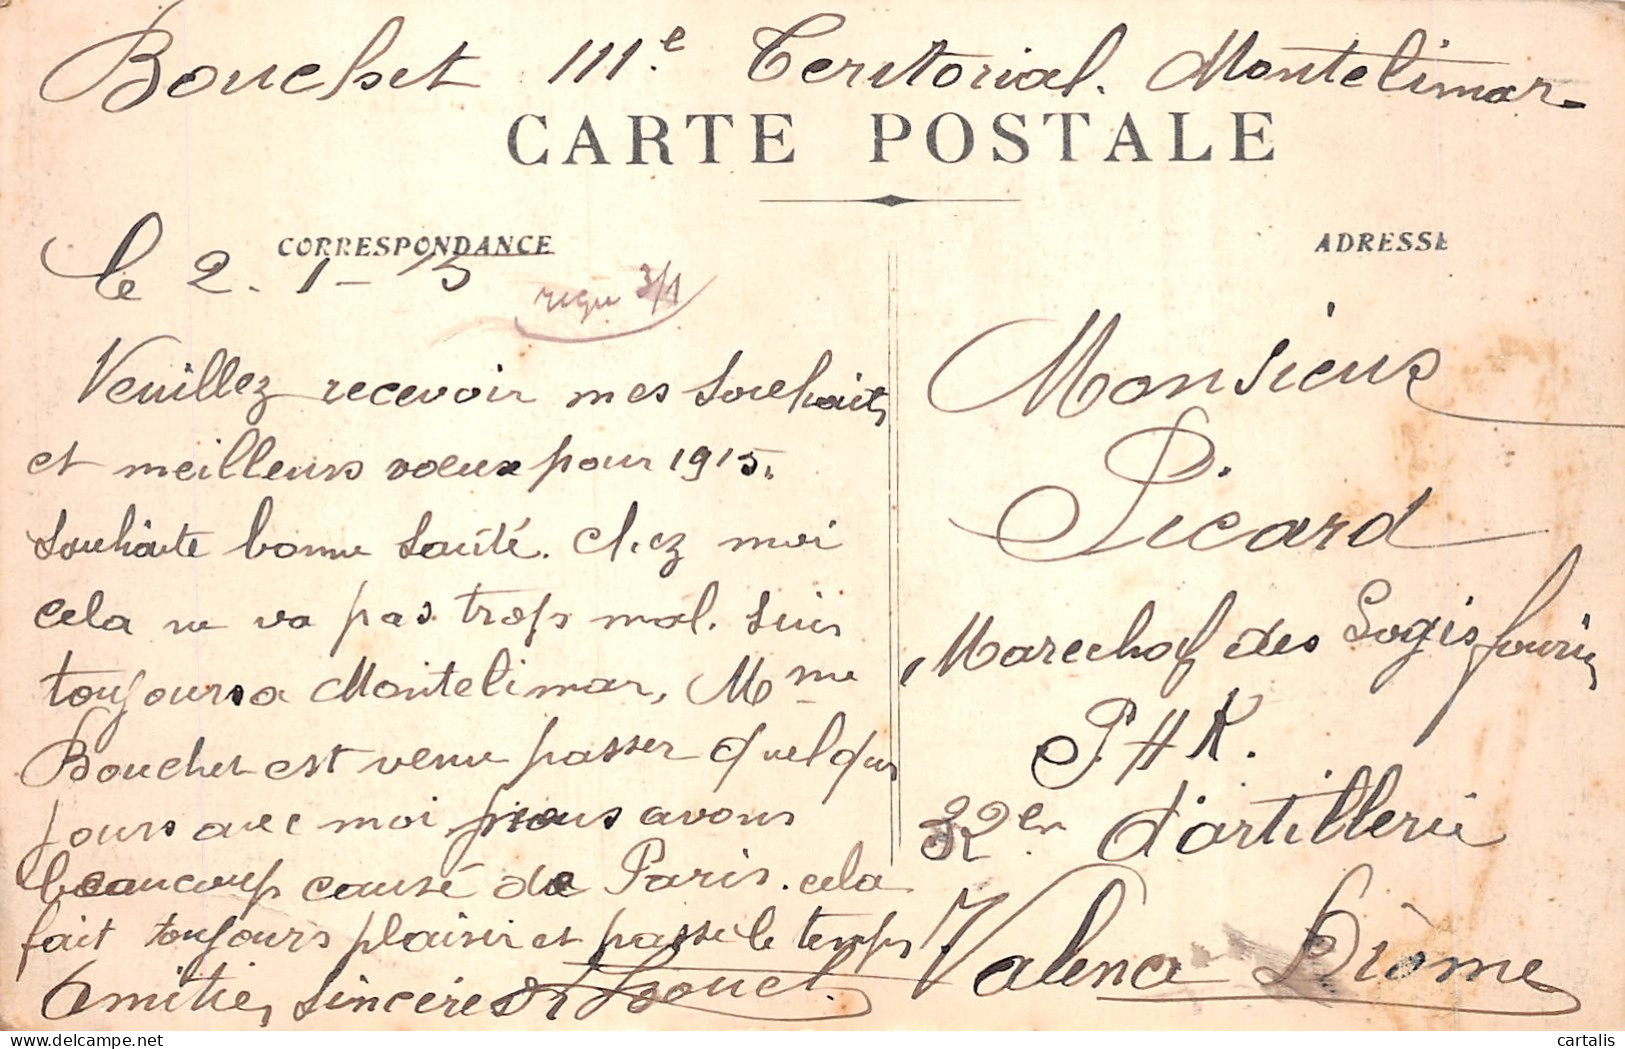 Bouchet 111e Teritorial. Montelimar
CARTE POSTALE
CORRESPONDANCE
ADRESSE
le 2. 1 - 15
reçu 3/1
Veuillez recevoir mes souhaits
et meilleurs voeux pour 1915.
Souhaite bonne santé. Chez moi
cela ne va pas trop mal. Suis
toujours a Montelimar, Mme
Bouchet est venue passer quelques
jours avec moi nous avons
beaucoup causé de Paris. cela
fait toujours plaisir et passe le temps
Amitie, sincère Bouchet
Monsieur
Picard
Marechal des Logis fourrier
P. H. R.
32e d'artillerie
Valence Drôme
delcampe.net
cartalis